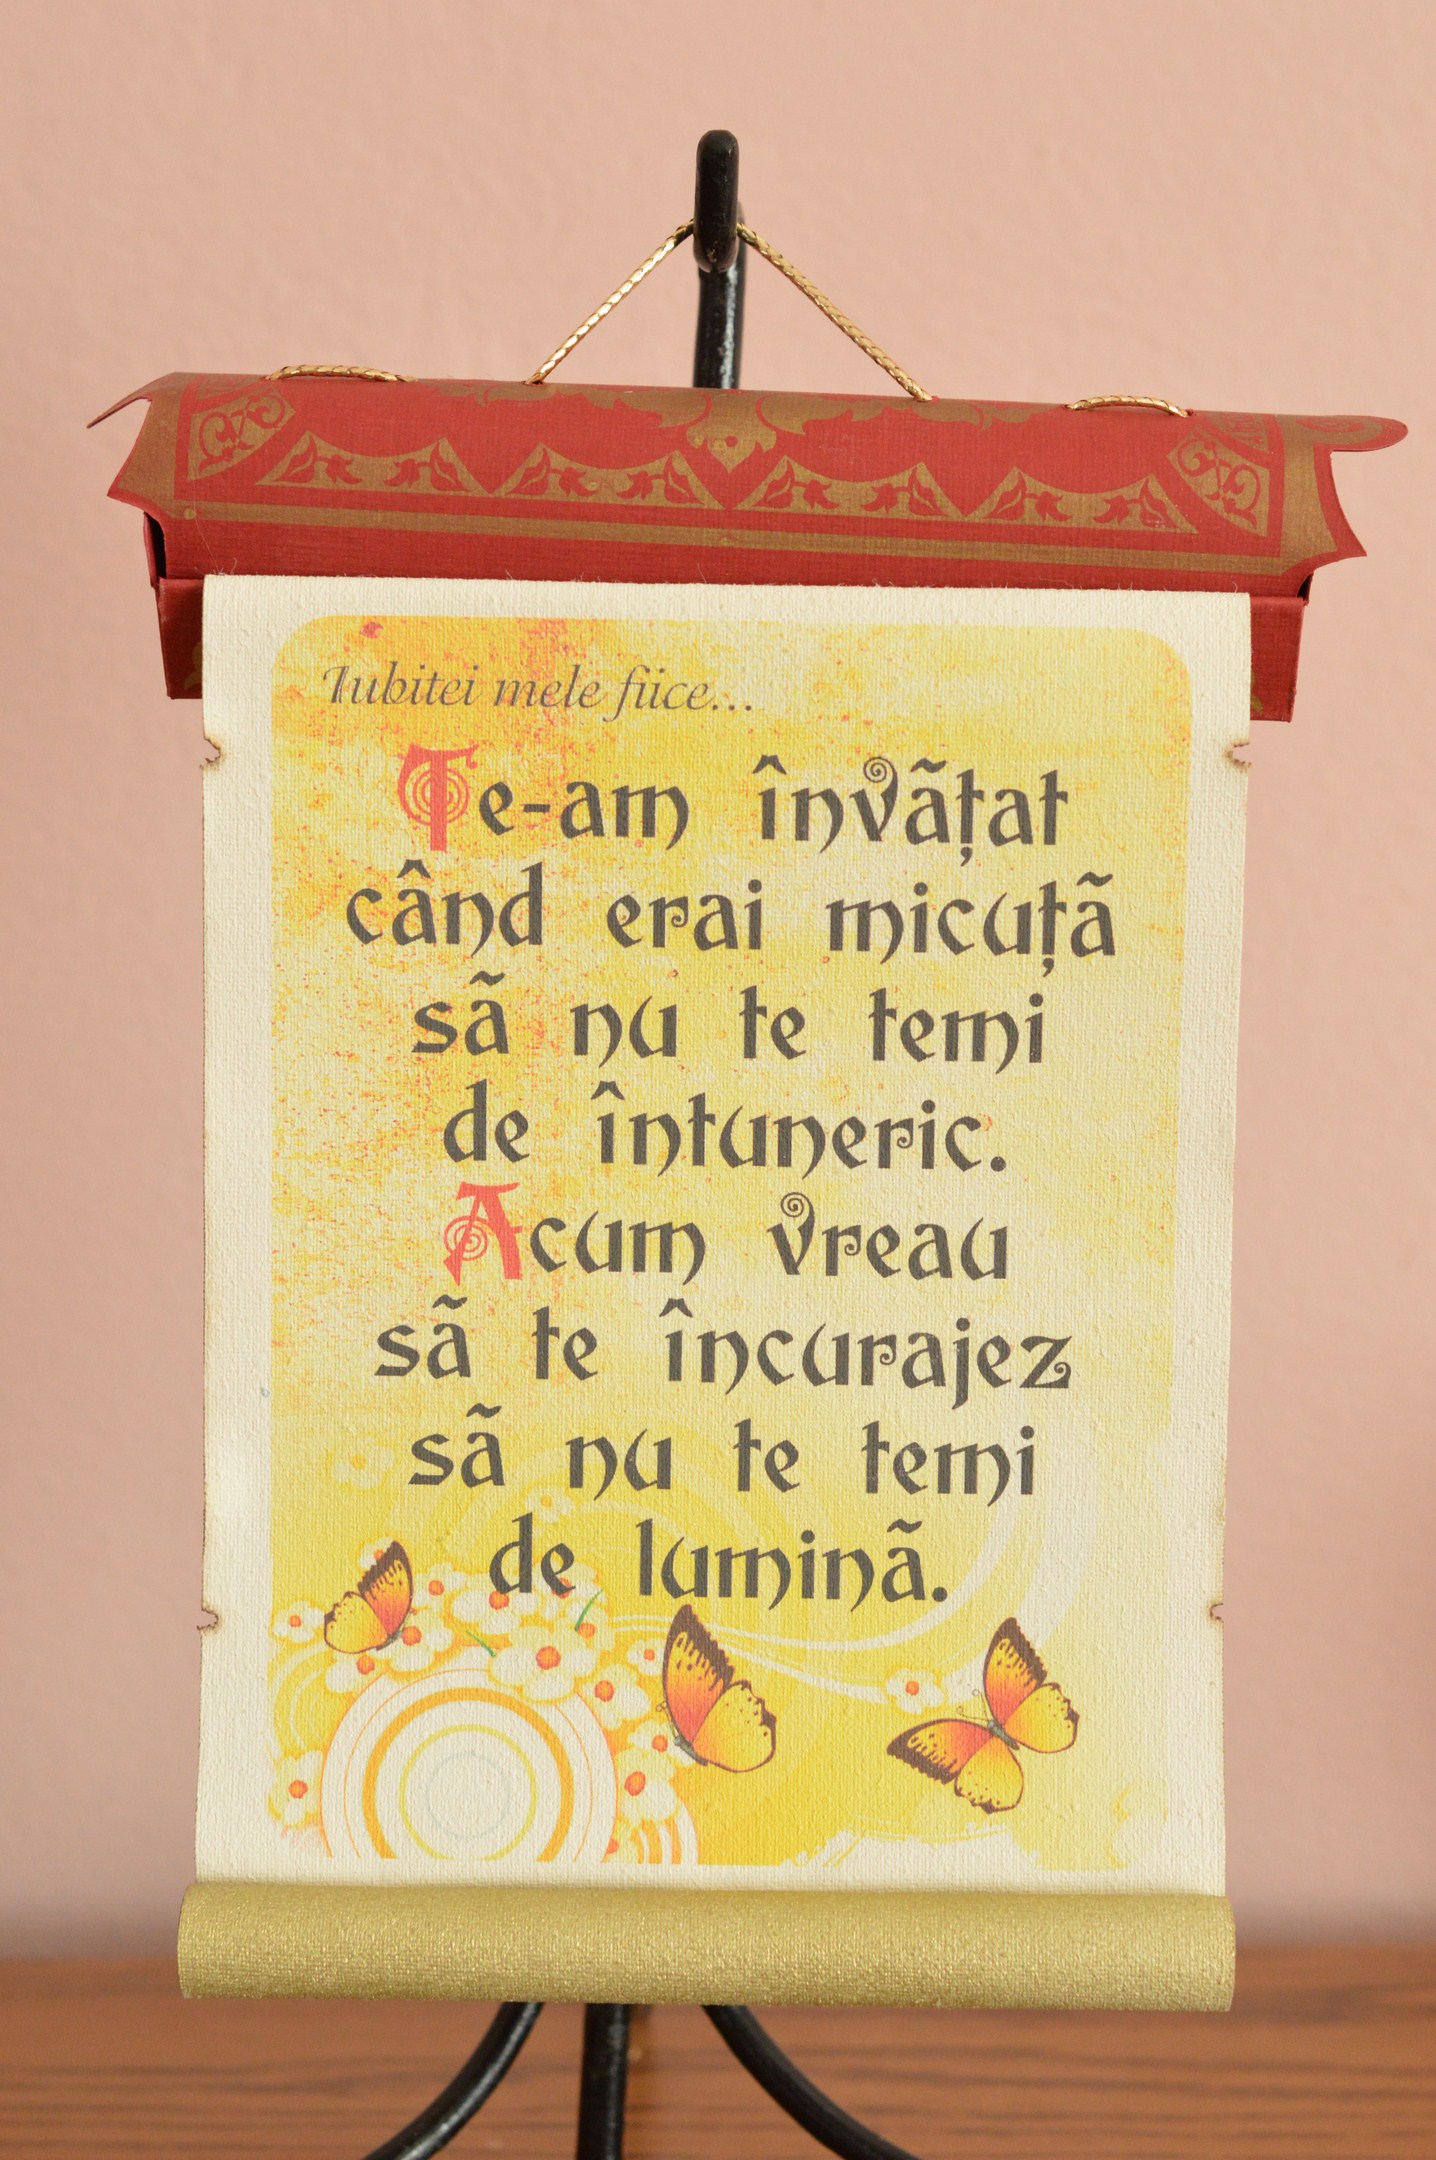 Iubitei mele fiice...
Te-am învãțat
când erai micuțã
sã nu te temi
de întuneric.
Acum vreau
sã te încurajez
sã nu te temi
de luminã.